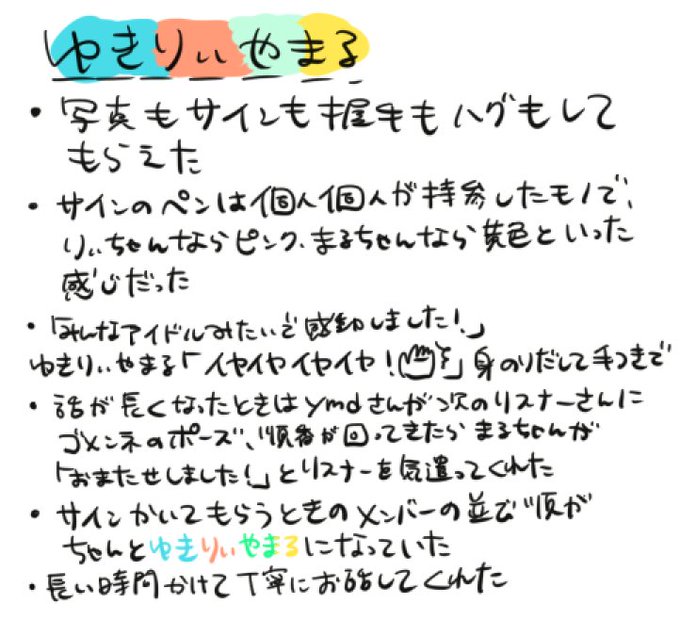 ゆきりぃやまる
・写真もサインも握手もハグもして
もらえた
・サインのペンは個人個人が持参したモノで、
りぃちゃんならピンク、まるちゃんなら黄色といった
感じだった
・「みんなアイドルみたいで感動しました!」
ゆきりぃやまる「イヤイヤイヤイヤ!」身のりだして手つきで
・話が長くなったときはymdさんが次のリスナーさんに
ゴメンネのポーズ、順番が回ってきたらまるちゃんが
「おまたせしました!」とリスナーを気遣ってくれた
・サインかいてもらうときのメンバーの並び順が
ちゃんとゆきりぃやまるになっていた
・長い時間かけて丁寧にお話してくれた